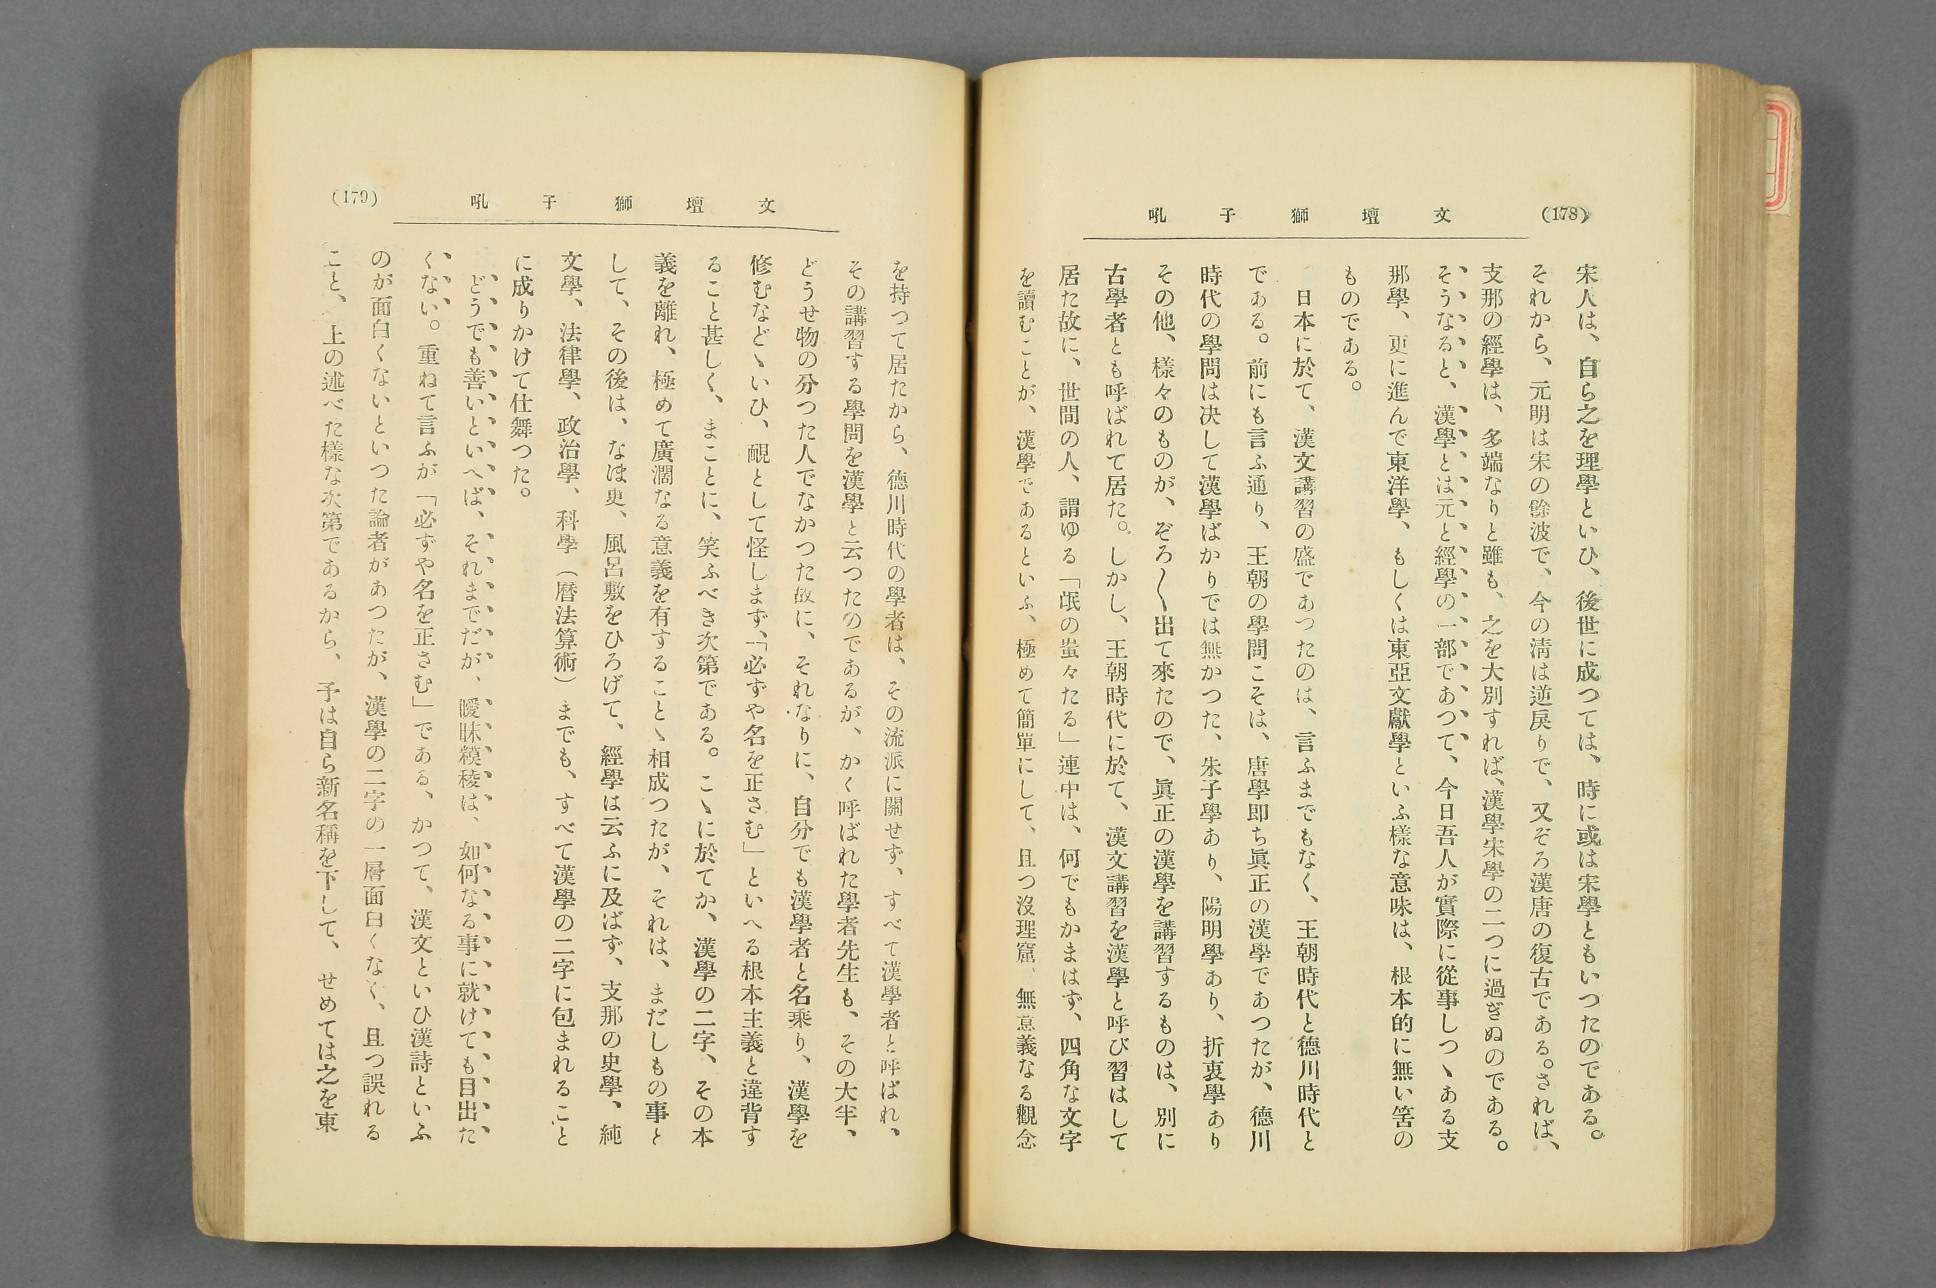 (178)
文壇獅子吼
宋人は、自ら之を理學といひ、後世に成つては、時に或は宋學ともいつたのである。
それから、元明は宋の餘波で、今の淸は逆戾りで、又ぞろ漢唐の復古である。されば、
支那の經學は、多端なりと雖も、之を大別すれば、漢學宋學の二つに過ぎぬのである。
そうなると、漢學とは元と經學の一部であつて、今日吾人が實際に從事しつヽある支
那學、更に進んで東洋學、もしくは東亞文獻學といふ樣な意味は、根本的に無い筈の
ものである。
日本に於て、漢文講習の盛であつたのは、言ふまでもなく、王朝時代と德川時代と
である。前にも言ふ通り、王朝の學問こそは、唐學卽ち眞正の漢學であつたが、德川
時代の學問は决して漢學ばかりでは無かつた、朱子學あり、陽明學あり、折衷學あり
その他、樣々のものが、ぞろ〱出て來たので、眞正の漢學を講習するものは、別に
古學者とも呼ばれて居た。しかし、王朝時代に於て、漢文講習を漢學と呼び習はして
居た故に、世間の人、謂ゆる「氓の蚩々たる」連中は、何でもかまはず、四角な文字
を讀むことが、漢學であるといふ、極めて簡單にして、且つ沒理窟、無意義なる觀念
(179)
文壇獅子吼
を持つて居たから、德川時代の學者は、その流派に關せず、すべて漢學者と呼ばれ、
その講習する學問を漢學と云つたのであるが、かく呼ばれた學者先生も、その大半、
どうせ物の分つた人でなかつた故に、それなりに、自分でも漢學者と名乘り、漢學を
修むなどヽいひ、靦として怪しまず、「必ずや名を正さむ」といへる根本主義と違背す
ること甚しく、まことに、笑ふべき次第である。こヽに於てか、漢學の二字、その本
義を離れ、極めて廣濶なる意義を有することヽ相成つたが、それは、まだしもの事と
して、その後は、なほ更、風呂敷をひろげて、經學は云ふに及ばず、支那の史學、純
文學、法律學、政治學、科學（曆法算術）までも、すべて漢學の二字に包まれること
に成りかけて仕舞つた。
どうでも善いといへば、それまでだが、曖昧糢稜は、如何なる事に就けても目出た
くない。重ねて言ふが「必ずや名を正さむ」である、かつて、漢文といひ漢詩といふ
のが面白くないといつた論者があつたが、漢學の二字の一層面白くなく、且つ誤れる
こと、上の述べた樣な次第であるから、予は自ら新名稱を下して、せめては之を東